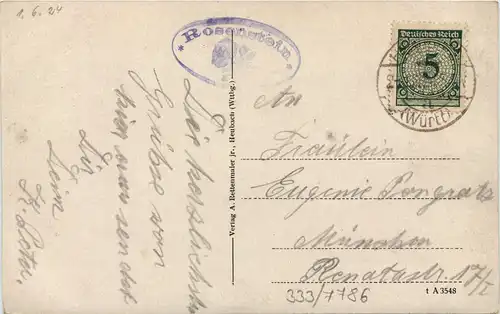 1.6.24
* Rosenstein. *
Deutsches Reich
5
(Württ)
Die herzlichsten
Grüße von
hier, aus sendet
Dir
Deine
K.
Verlag A. Reitenmaier jr., Heubach (Wttbg.)
An
Fräulein
Eugenie Pongratz
München
Renatastr. 17/I
333/7786
t A 3548